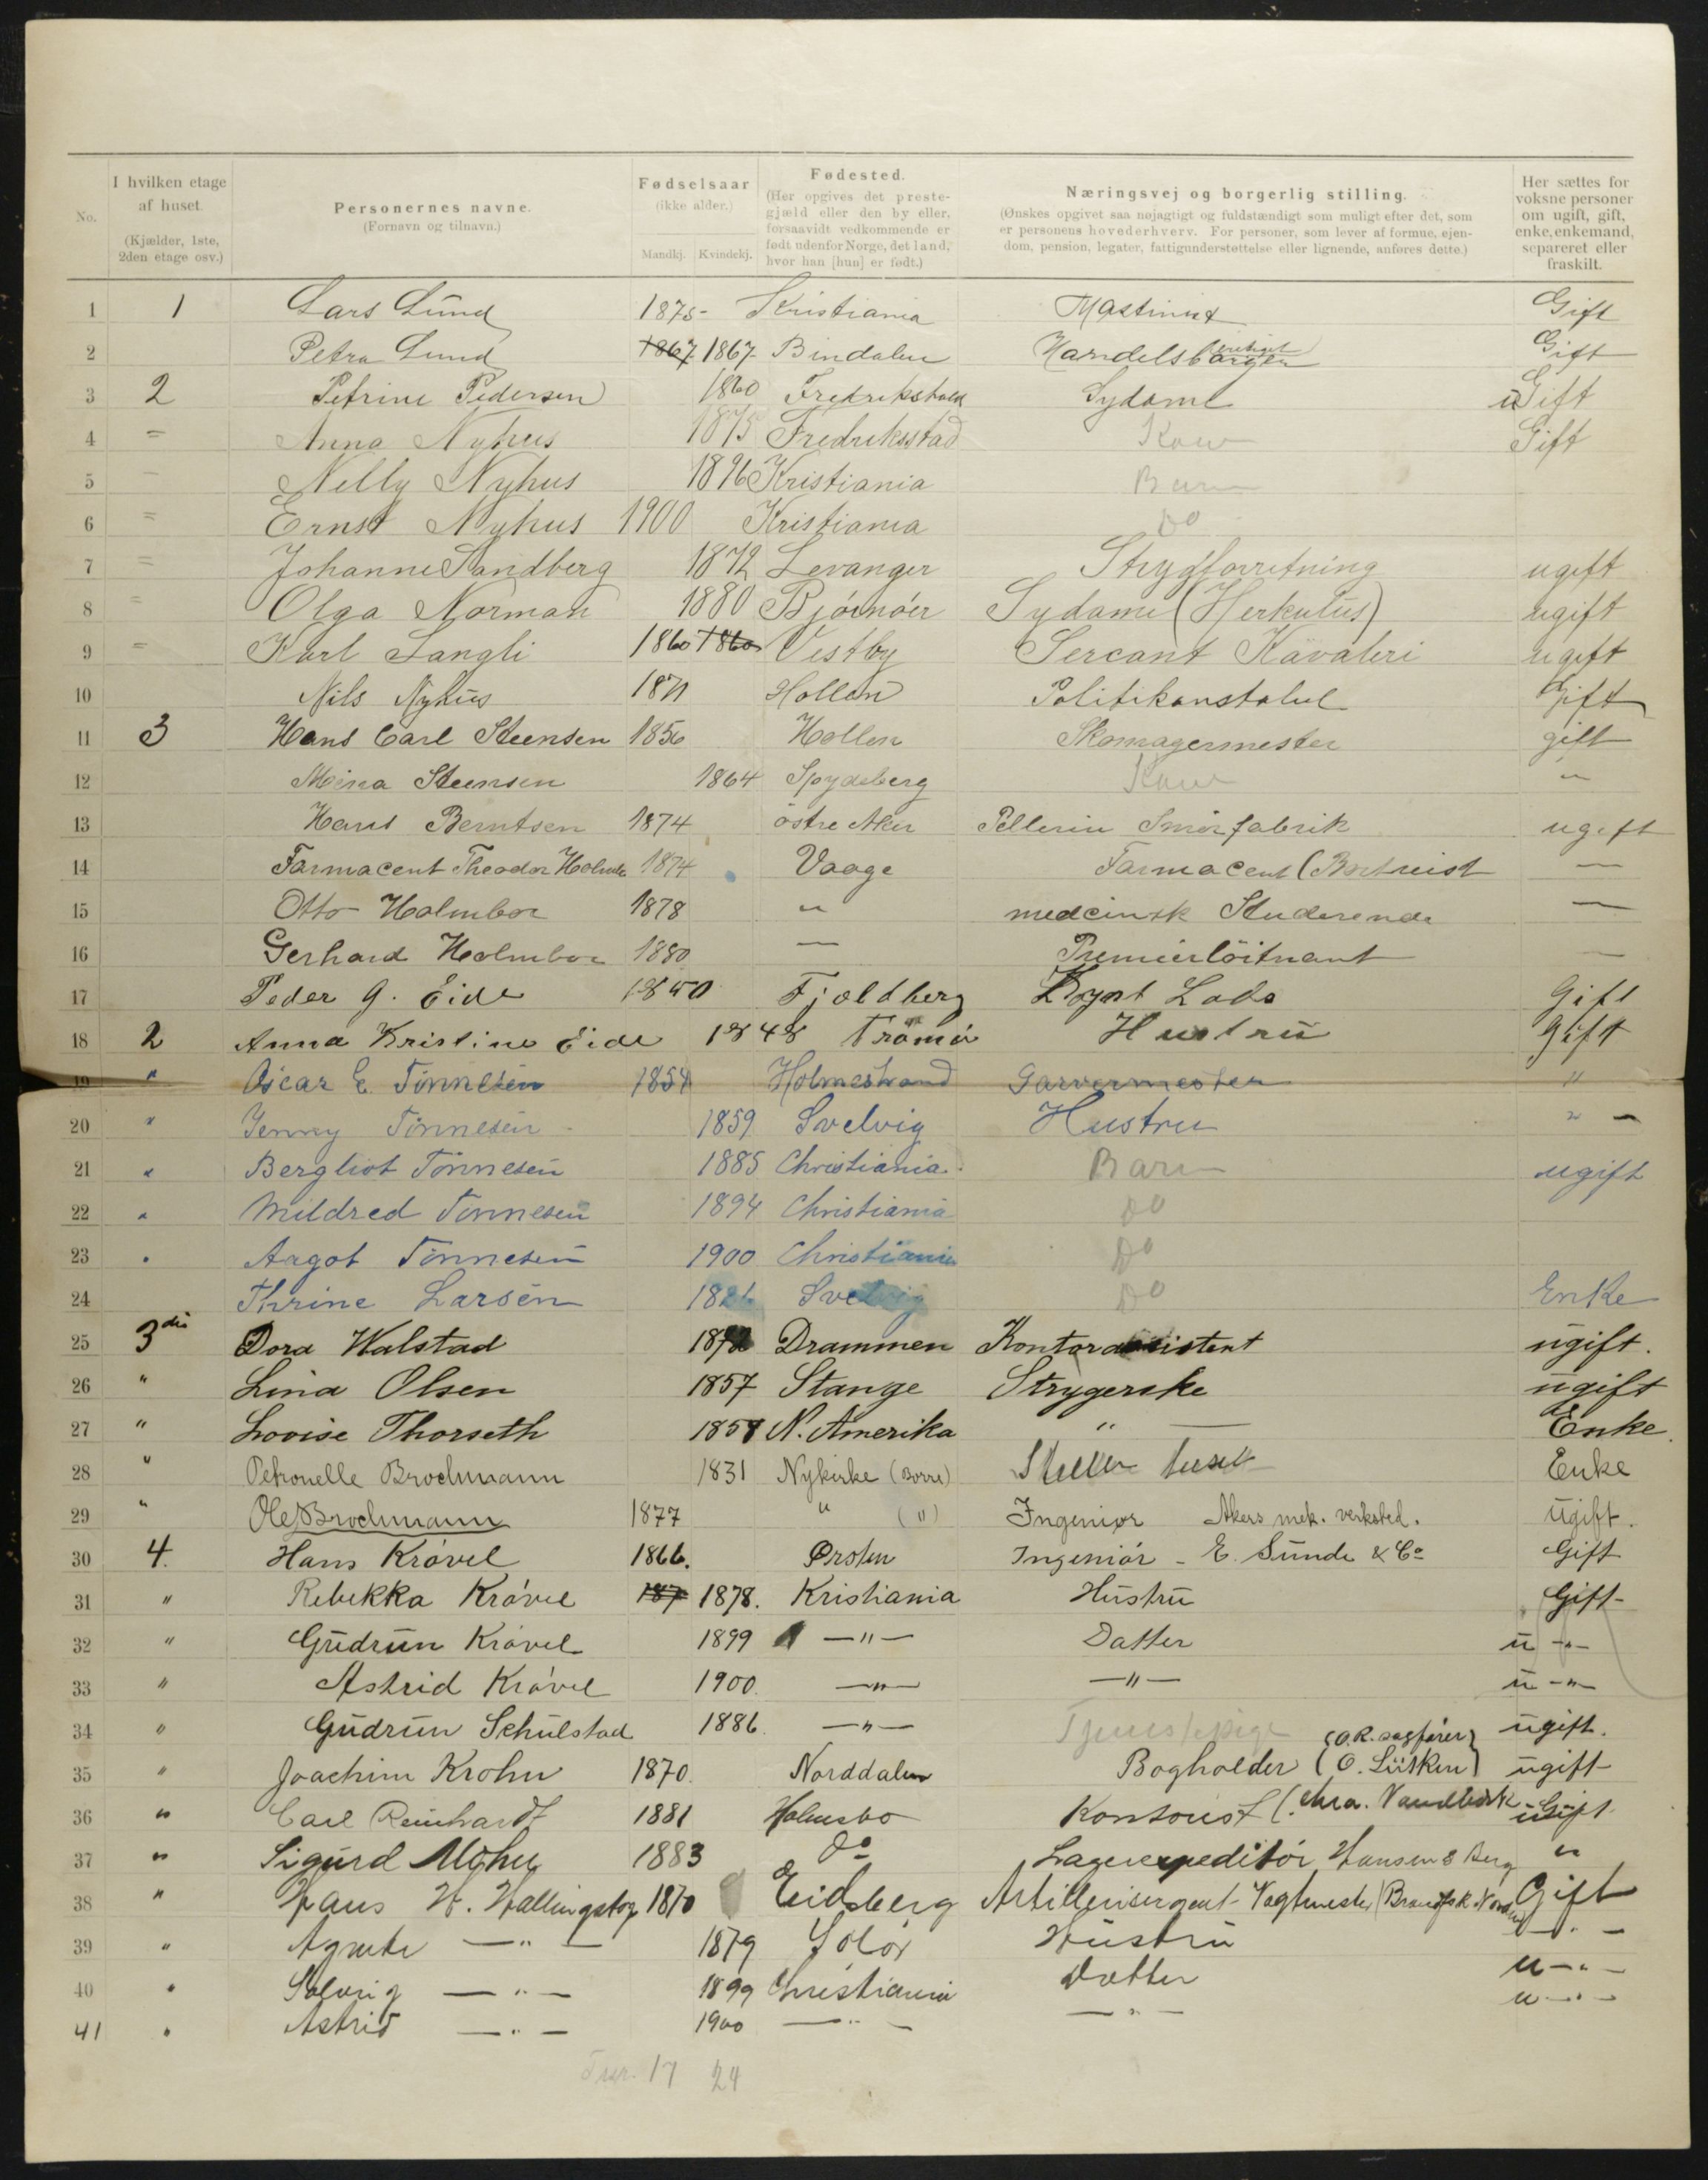 No.
I hvilken etage af huset. (Kjælder, 1ste, 2den etage osv.)
Personernes navne. (Fornavn og tilnavn.)
Fødselsaar (ikke alder.) Mandkj. Kvindekj.
Fødested. (Her opgives det prestegjæld eller den by eller, forsaavidt vedkommende er født udenfor Norge, det land, hvor han [hun] er født.)
Næringsvej og borgerlig stilling. (Ønskes opgivet saa nøjagtigt og fuldstændigt som muligt efter det, som er personens hovederhverv. For personer, som lever af formue, ejendom, pension, legater, fattigunderstøttelse eller lignende, anføres dette.)
Her sættes for voksne personer om ugift, gift, enke, enkemand, separeret eller fraskilt.
1 1 Lars Lund 1875 Kristiania Maskinist Gift
2 Petra Lund 1867 1867 Bindalen Gift
3 2 Petrine Pedersen 1860 Fredrikshald Sydame uGift
4 = Anna Nyhus 1875 Fredriksstad Kone Gift
5 – Nelly Nyhus 1896 Kristiania Barn
6 = Ernst Nyhus 1900 Kristiania Do
7 = Johanne Sandberg 1872 Levanger Strygforretning ugift
8 = Olga Norman 1880 Bjørnøer Sydame (Herkulus) ugift
9 = Karl Langli 1860 1860 Vestby Sercant Kavaleri ugift
10 Nils Nyhus 1871 Hollen Politikonstabel Gift
11 3 Hans Carl Steensen 1856 Hollen Skomagermester gift
12 Steensen 1864 Spydeberg Kone "
13 Hans Berntsen 1874 østre Aker Pellerin Smørfabrik ugift
14 Farmacent Theodor 1874 Vaage Farmacent —
15 Otto Holmboe 1878 " medcinsk Studerende —
16 Gerhard Holmboe 1880 — Premierløitnant —
17 Peder G. Eide 1850 Fjeldberg Kyst Lods Gift
18 2 Anna Kristine Eide 1848 Tromø Hustru Gift
19 " Oscar E. Tønnesen 1854 Holmestrand Garvermester "
20 " Jenny Tønnesen 1859 Svelvig Hustru " —
21 " Bergliot Tønnesen 1885 Christiania Barn ugift
22 " Mildred Tønnesen 1894 Christiania Do
23 " Aagot Tønnesen 1900 Christiania Do
24 Thrine Larsen Svelvig Do Enke
25 3die Dora Walstad Drammen Kontorassistent ugift.
26 " Lina Olsen 1857 Stange Strygerske ugift
27 " Lovise Thorseth 1858 N. Amerika " — Enke.
28 " Petronelle Brochmann 1831 Nykirke (Borre) Enke
29 " Ole Brochmann 1877 " (") Ingeniør Akers mek. verksted. Ugift.
30 4. Hans Krøvel 1866. Ørsten Ingeniør - E. Sunde & Co Gift
31 " Rebekka Krøvel 187 1878. Kristiania Hustru Gift
32 " Gudrun Krøvel 1899 —"— Datter u —"—
33 " Astrid Krøvel 1900. —"— —"— u —"—
34 " Gudrun Schulstad 1886. —"— Tjenestepige ugift.
35 " Joachim Krohn 1870. Norddalen Bogholder (O.R. sagfører) (O. Lütken) ugift
36 " Carl Reinhardt 1881 Holmsbo Kontorist (Chra. ugift
37 " Sigurd Mohn 1883 Do Lagerexpeditør Hansen & Berg "
38 " Hans H. 1870 Eidsberg Artillerisergent - Vagtmester Gift
39 " Agnete —"— 1879 Solør Hustru —"—
40 " Solveig —"— 1899 Christiania Datter u —"—
41 " Astrid —"— 1900 —"— —"— u —"—
17 24